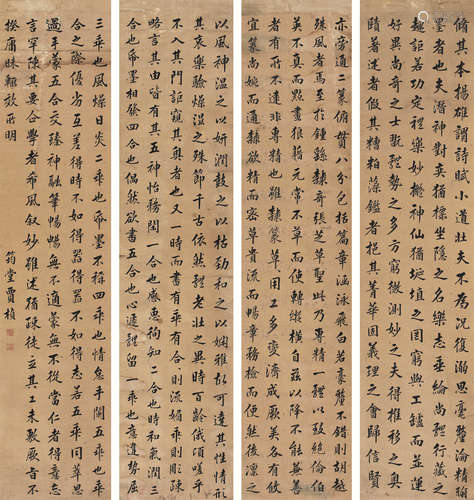 脩其本揚雄謂詩賦小道壯夫不為況復溺思豪釐淪精翰
墨者也夫潛神對奕猶標坐隱之名樂志垂綸尚體行藏之
趣詎若功定禮樂妙擬神仙猶埏埴之罔窮與工鑪而並運
好異尚奇之士翫體勢之多方窮微測妙之夫得推移之奧
賾著述者假其糟粕藻鑒者挹其菁華固義理之會歸信賢
亦旁通二篆俯貫八分包括篇章涵泳飛白若豪釐不察則胡越
殊風者焉至於鍾繇隸奇張芝草聖此乃專精一體以致絕倫伯
英不真而點畫狼藉元常不草而使轉縱橫自茲以降不能兼善
者有所不逮非專精也雖篆隸草章工用多變濟成厥美各有攸
宜篆尚婉而通隸欲精而密草貴流而暢章務檢而便然後凜之
以風神溫之以妍潤鼓之以枯勁和之以閑雅故可達其情性形
其哀樂驗燥濕之殊節千古依然體老壯之異時百齡俄頃嗟乎
不入其門詎窺其奧者也又一時而書有乖有合合則流媚乖則彫疎
略言其由各有其五神怡務閑一合也感惠徇知二合也時和氣潤三
合也紙墨相發四合也偶然欲書五合也心遽體留一乖也意違勢屈
二乖也風燥日炎三乖也紙墨不稱四乖也情怠手闌五乖也乖
合之際優劣互差得時不如得器得器不如得志若五乖同萃思
遏手蒙五合交臻神融筆暢暢無不適蒙無不從當仁者得意忘
言罕陳其要企學者希風敘妙雖述猶疎徒立其工未敷厥旨不
揆庸昧輒效所明
筠堂賈楨